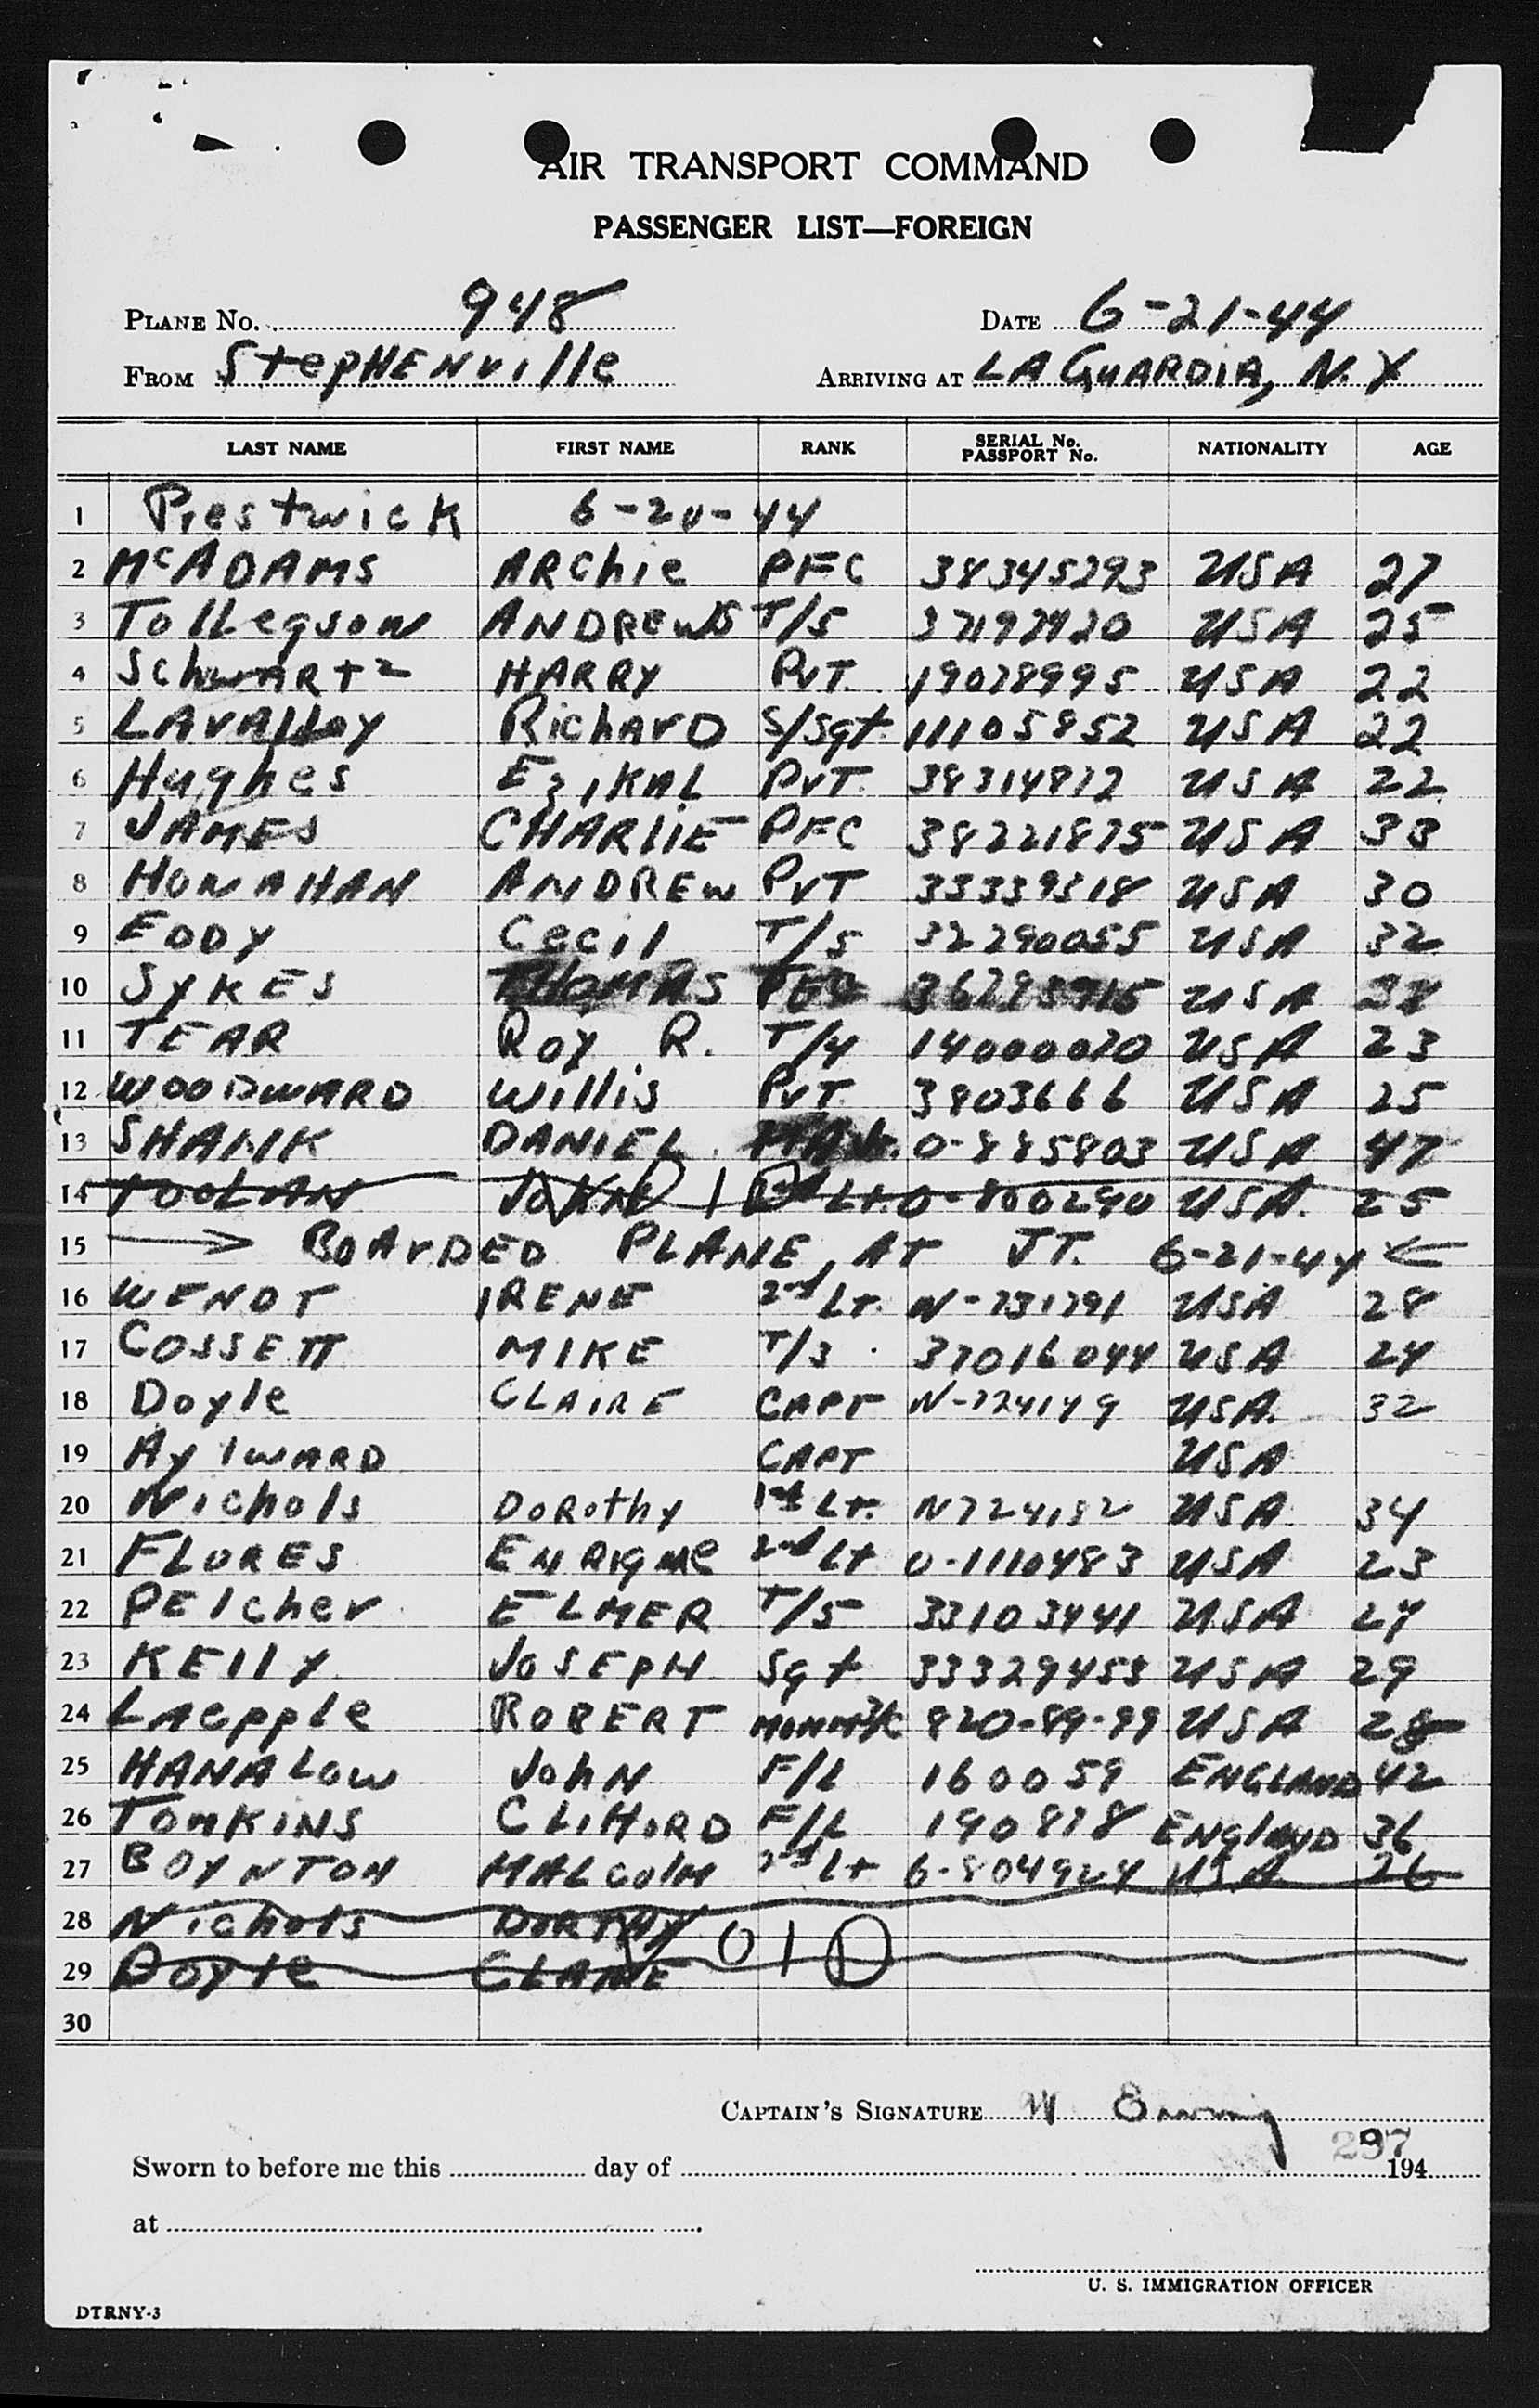 AIR TRANSPORT COMMAND
PASSENGER LIST—FOREIGN
PLANE No. 948 DATE 6-21-44
FROM StepHENville ARRIVING AT LA GUARDIA, N.Y
LAST NAME FIRST NAME RANK SERIAL No. PASSPORT No. NATIONALITY AGE
1 Prestwick 6-20-44
2 McADAMS ARchie PFC 38345293 USA 27
3 Tollegson ANDREWS T/5 37197920 USA 25
4 SchwARtz HARRY PvT. 19078995 USA 22
5 LAVAlley RichARD S/Sgt. 11105852 USA 22
6 Hughes EzIKAL PvT. 38314872 USA 22
7 JAMES CHARLIE PFC 38221875 USA 33
8 HONAHAN ANDREW PvT 33339518 USA 30
9 EDDY Cecil T/5 32290055 USA 32
10 SYKES THOMAS USA
11 TEAR Roy R. T/4 14000070 USA 23
12 WOODWARD Willis PvT 3803666 USA 25
13 SHANK DANIEL 0-885803 USA 47
14 TOOLAN JOHN Lt. 0-800290 USA. 25
15 BOARDED PLANE AT JT. 6-21-44
16 WENDT IRENE 2nd Lt. N-731791 USA 28
17 COSSETT MIKE T/3 37016044 USA 24
18 Doyle CLAIRE CAPT N-724149 USA. 32
19 AylWARD CAPT USA
20 Nichols DoRothy 1st Lt. N724182 USA 34
21 FLORES ENRIQUE 2nd Lt 0-1110483 USA 23
22 PElcher ELMER T/5 33103441 USA 24
23 KElly JOSEPH Sgt 33329453 USA 29
24 LAepple ROBERT 820-89-99 USA 28
25 HANALOW JohN F/L 160059 ENGLAND 42
26 TOMKINS CLIFFORD F/L 190878 ENglAND 36
27 BOYNTON MALcolM 2nd Lt 0-804924 USA 26
28 Nichols DORTHY
29 Doyle CLAIRE
30
CAPTAIN'S SIGNATURE
297
Sworn to before me this day of 194
at
U. S. IMMIGRATION OFFICER
DTRNY-3